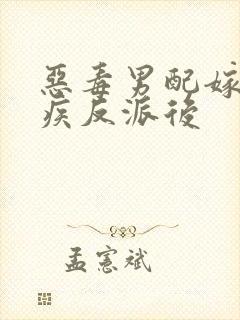 惡毒男配嫁
疾反派後
孟憲斌